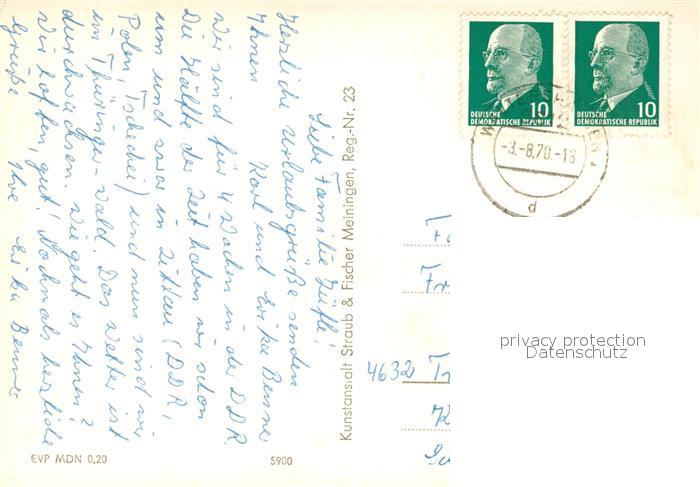 Liebe Familie Züfle!
Herzliche Urlaubsgrüße senden
Ihnen Karl und Erika Benner
Wir sind für 4 Wochen in der DDR.
Die Hälfte der Zeit haben wir schon
um und zwar in Zittau (DDR,
Polen, Tschechei) und nun sind wir
im Thüringer-Wald. Das Wetter ist
durchwachsen. Wie geht es Ihnen?
Wir hoffen, gut! Nochmals herzliche
Grüße Ihre Erika Benner
EVP MDN 0,20
5900
Kunstanstalt Straub & Fischer Meiningen, Reg.-Nr. 23
10
DEUTSCHE
DEMOKRATISCHE REPUBLIK
10
DEUTSCHE
DEMOKRATISCHE REPUBLIK
-3.-8.70.-18
d
privacy protection
Datenschutz
4632